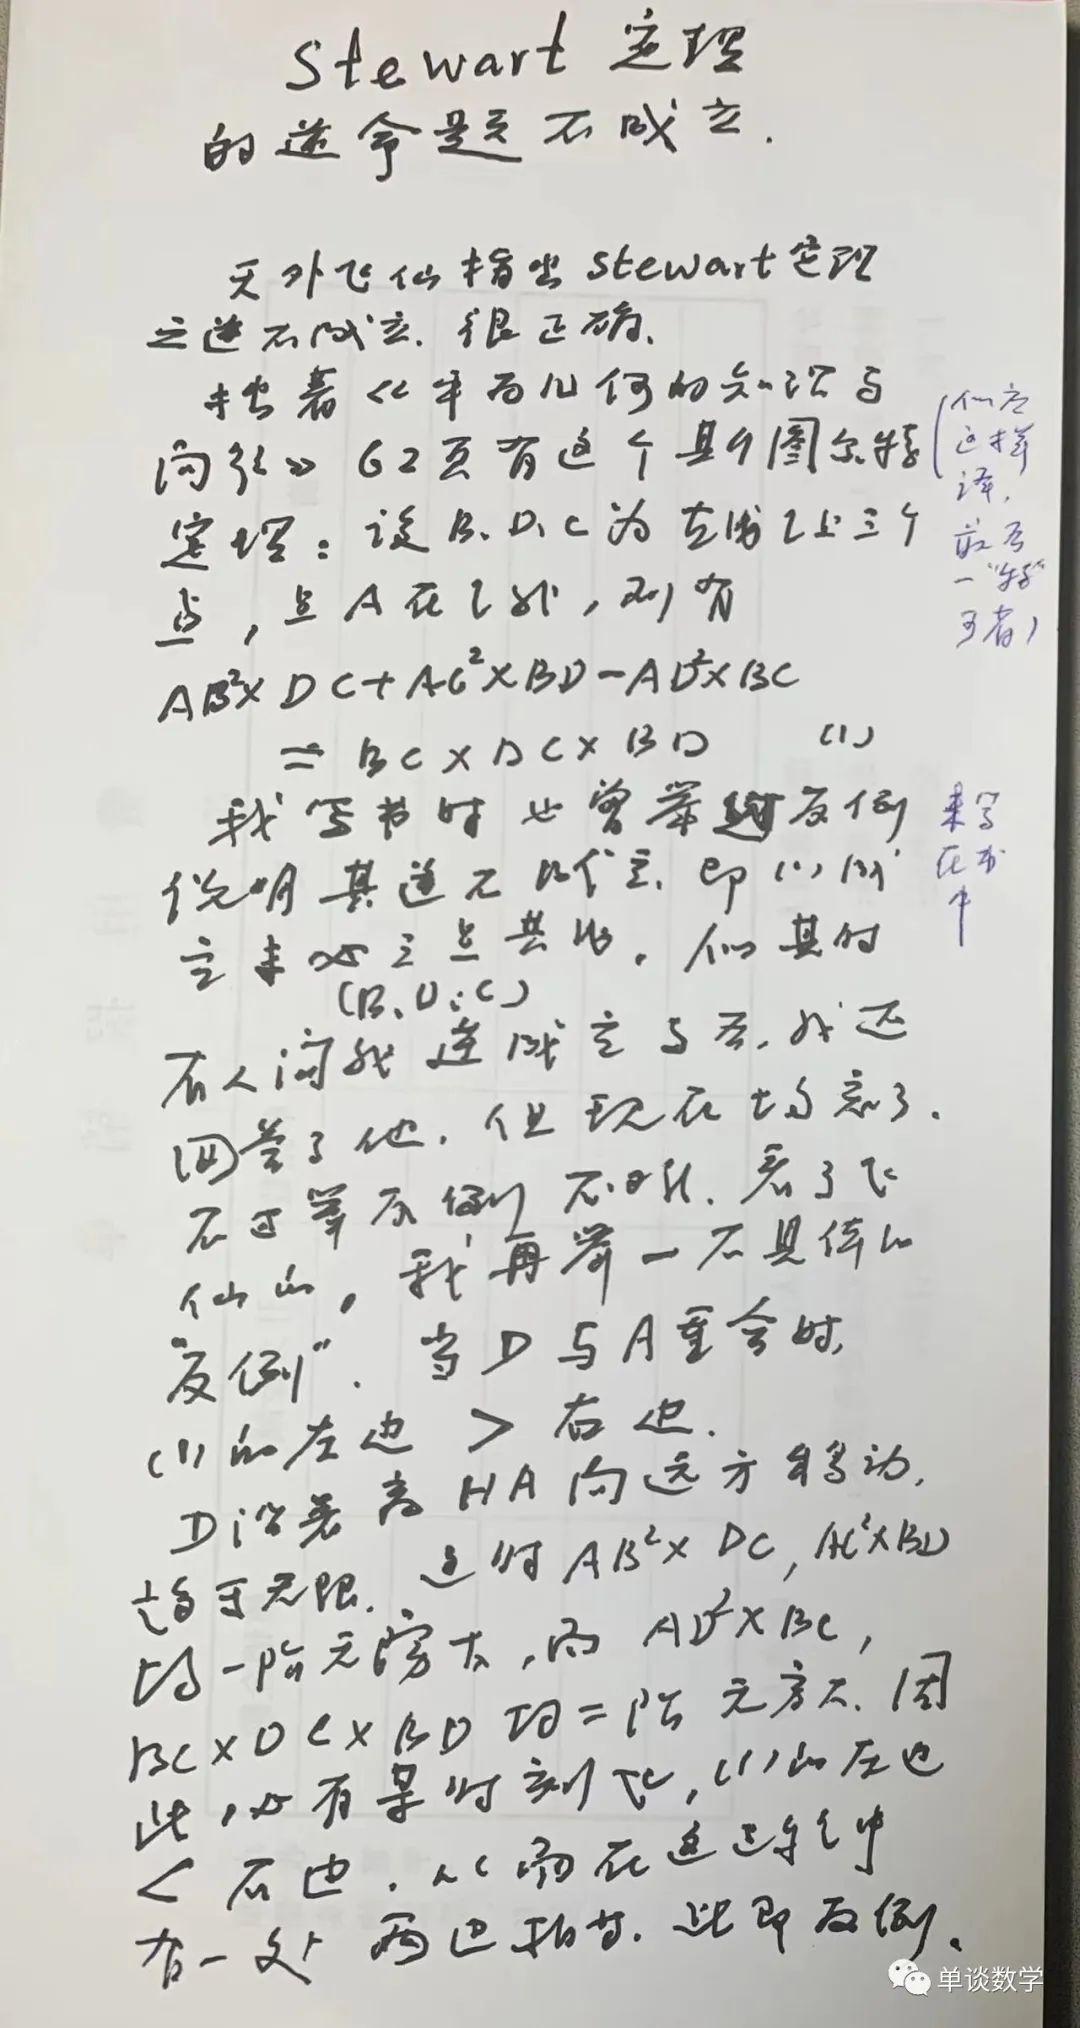 Stewart 定理
的逆命题不成立.
天外飞仙指出 Stewart 定理
之逆不成立. 很正确.
拙著《平面几何的知识与
问题》62页有这个
定理: 设 B、D、C 为直线 l 上三个
点, 点 A 在 l 外, 则有
AB²×DC+AC²×BD-AD²×BC
= BC×DC×BD (1)
我写书时也曾举过反例
说明其逆不成立. 即(1)成
立未必三点共线. 但其时
(B、D、C)
有人问我逆成立与否, 我还
回答了他. 但现在均忘了.
不过举反例不难. 看了飞
仙的, 我再举一不具体的
"反例". 当 D 与 A 重合时,
(1)的左边 > 右边.
D 沿着高 HA 向远方移动,
趋于无限. 这时 AB²×DC, AC²×BD
均一阶无穷大, 而 AD²×BC,
BC×DC×BD 均二阶无穷大. 因
此, 必有某时刻起, (1)的左边
< 右边. 从而在这过程中
有一处两边相等. 此即反例.
(似应
这样
译,
最后
一"特"
可省)
未写
在书
中
单谈数学